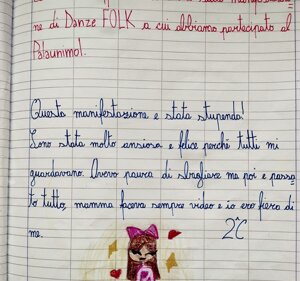 ne di Danze FOLK a cui abbiamo partecipato al
Palaunimol.
Questa manifestazione e stata stupenda!
Sono stata molto ansiosa e felice perché tutti mi
guardavano. Avevo paura di sbagliare ma poi e passa
to tutto, mamma faceva sempre video e io ero fiera di
me.
2ªC